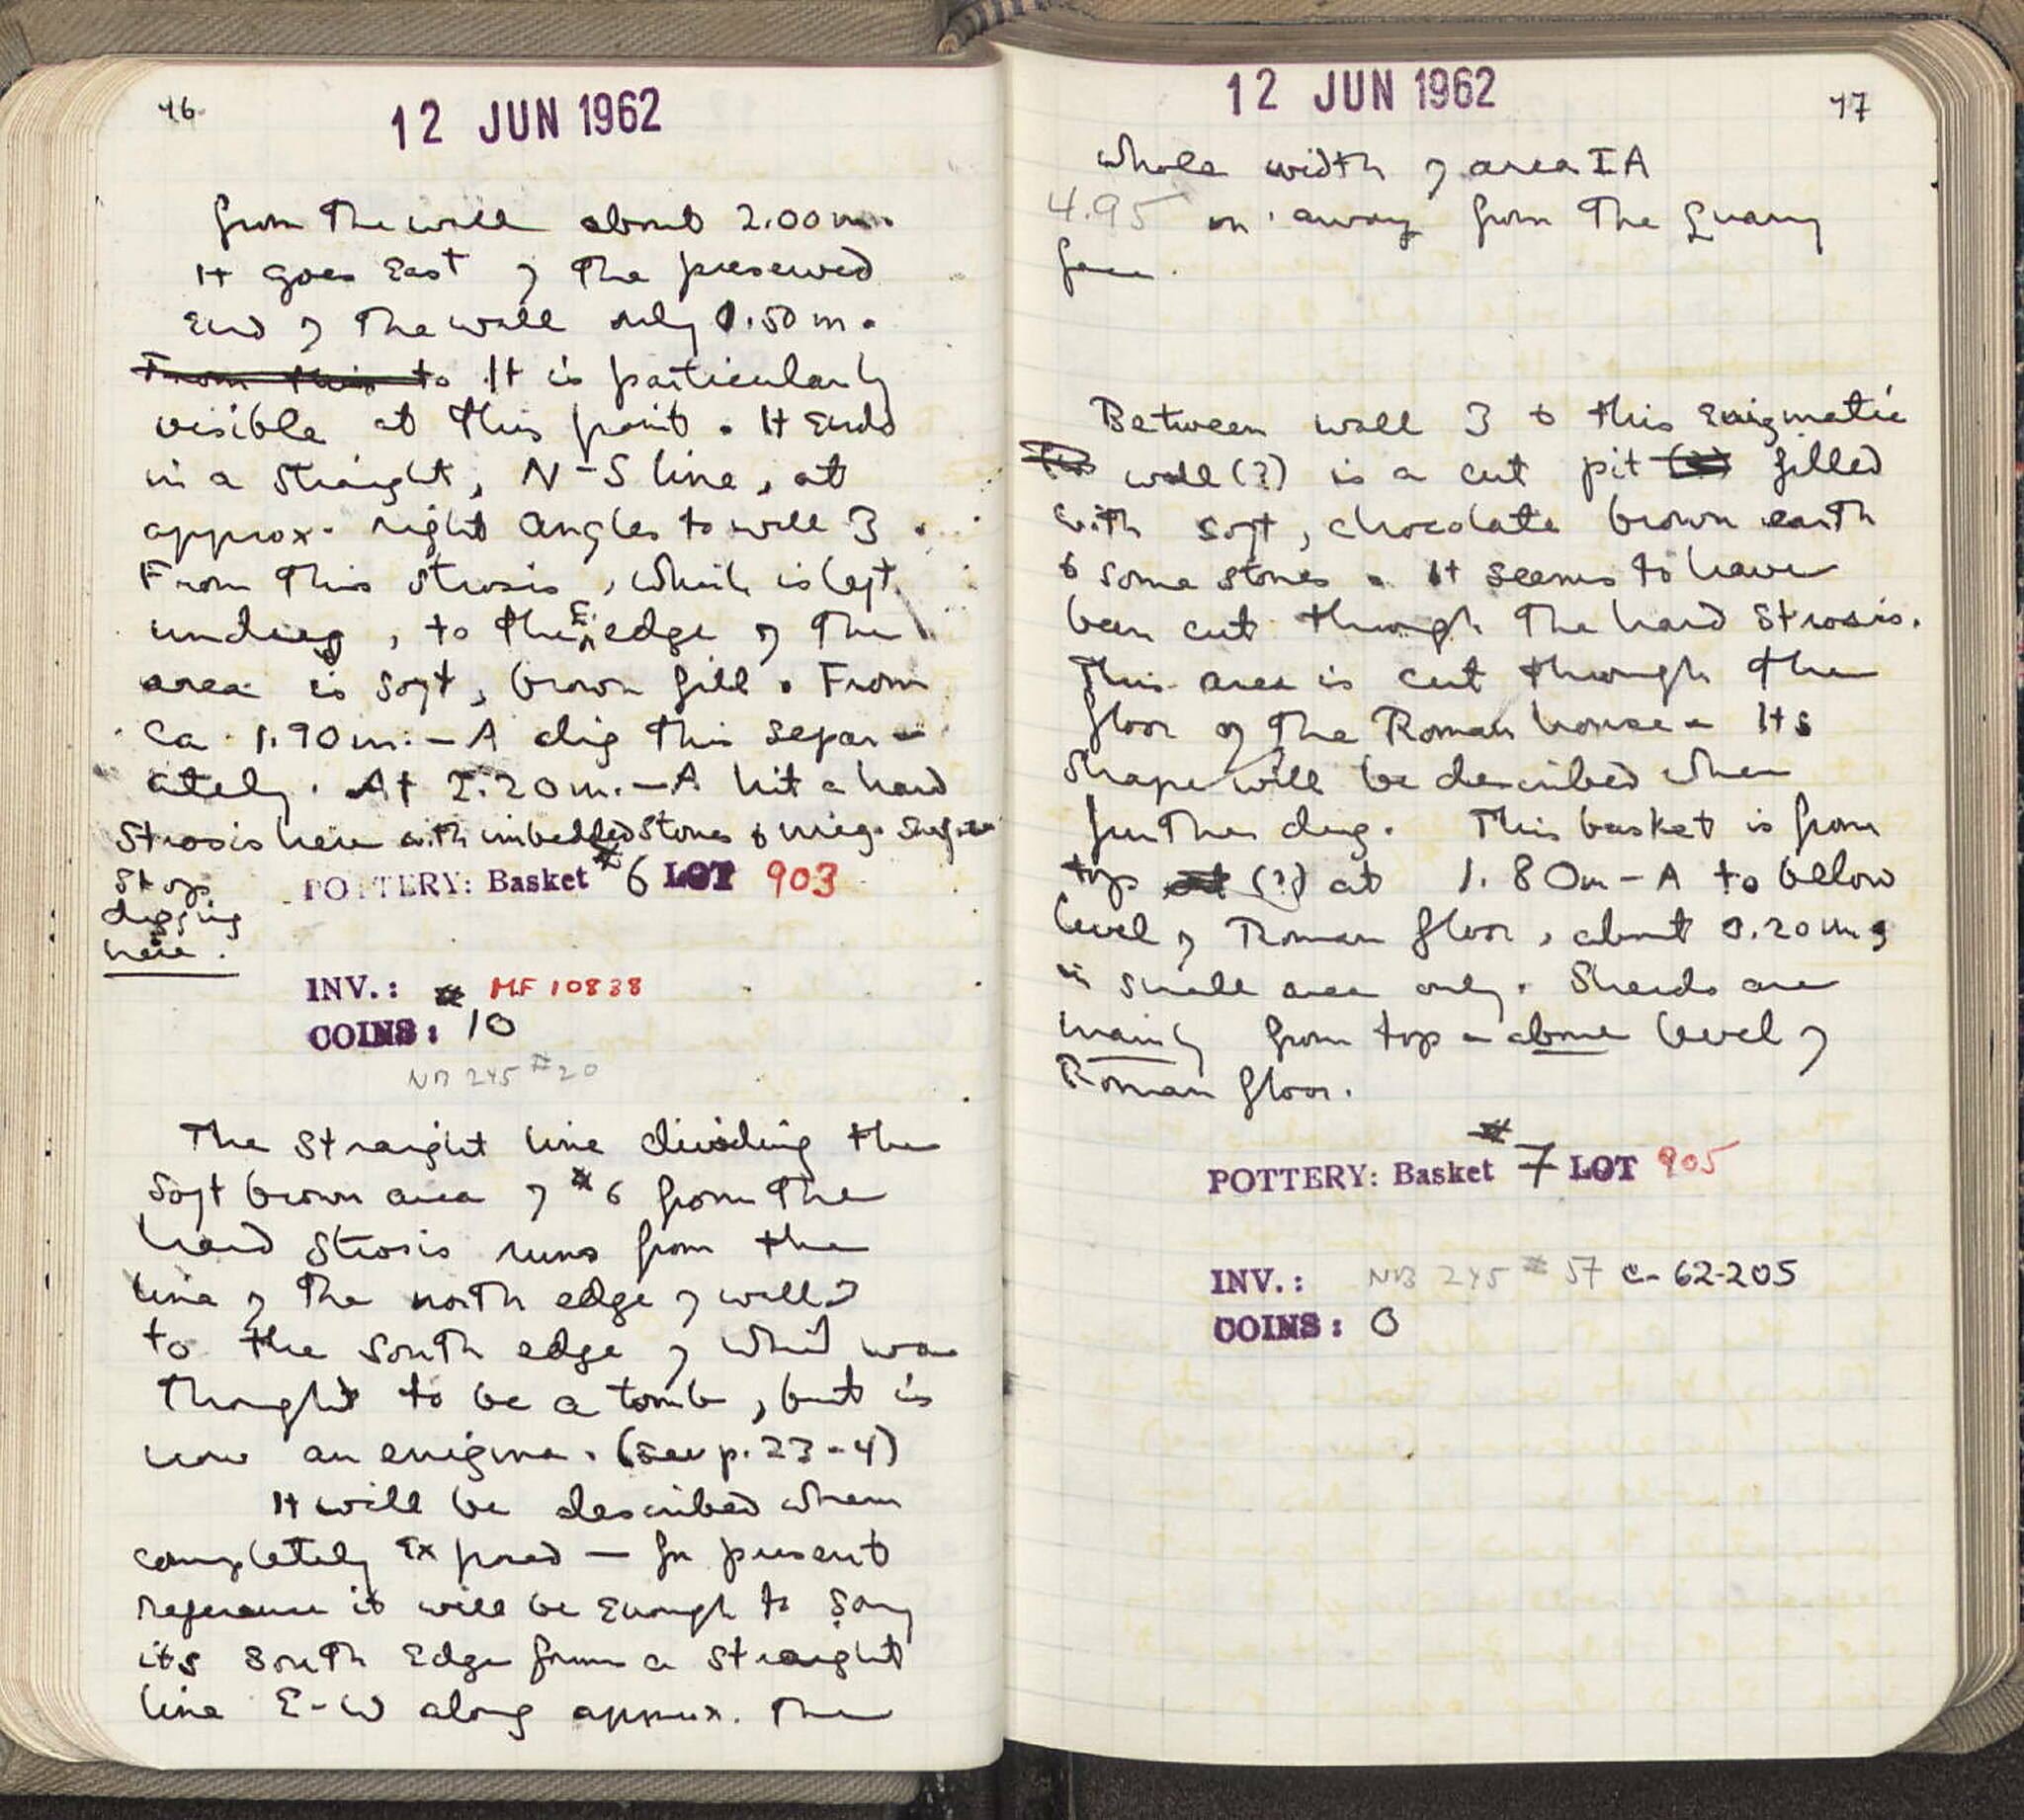 46
12 JUN 1962
from the wall about 2.00 m.
It goes East of the preserved
End of the wall only 0.50 m.
From this to It is particularly
visible at this point. It Ends
in a straight, N-S line, at
approx. right angles to wall 3.
From this strosis, which is left
undug, to the E edge of the
area is soft, brown fill. From
ca. 1.90 m. - A dig this separ-
ately. At 2.20 m. - A hit a hard
Strosis here with imbedded stones & irreg. surface
Stop
digging
here.
POTTERY: Basket # 6 LOT 903
INV.: # MF 10838
COINS: 10
NB 245 #20
The straight line dividing the
soft brown area of #6 from the
hard strosis runs from the
line of the north edge of wall 3
to the South edge of what was
thought to be a tomb, but is
now an enigma. (see p. 23-4)
It will be described when
completely Exposed — for present
reference it will be Enough to say
its South Edge forms a straight
line E-W along approx. the
47
12 JUN 1962
whole width of area IA
4.95 m. away from the Quarry
face.
Between wall 3 & this Enigmatic
wall (?) is a cut pit filled
with soft, chocolate brown earth
& some stones. It seems to have
been cut through the hard Strosis.
This area is cut through the
floor of the Roman house - Its
shape will be described when
further dug. This basket is from
top (?) at 1.80 m - A to below
level of Roman floor, about 0.20 m,
in small area only. Sherds are
mainly from top - above level of
Roman floor.
POTTERY: Basket # 7 LOT 905
INV.: NB 245 # 57 C-62-205
COINS: 0